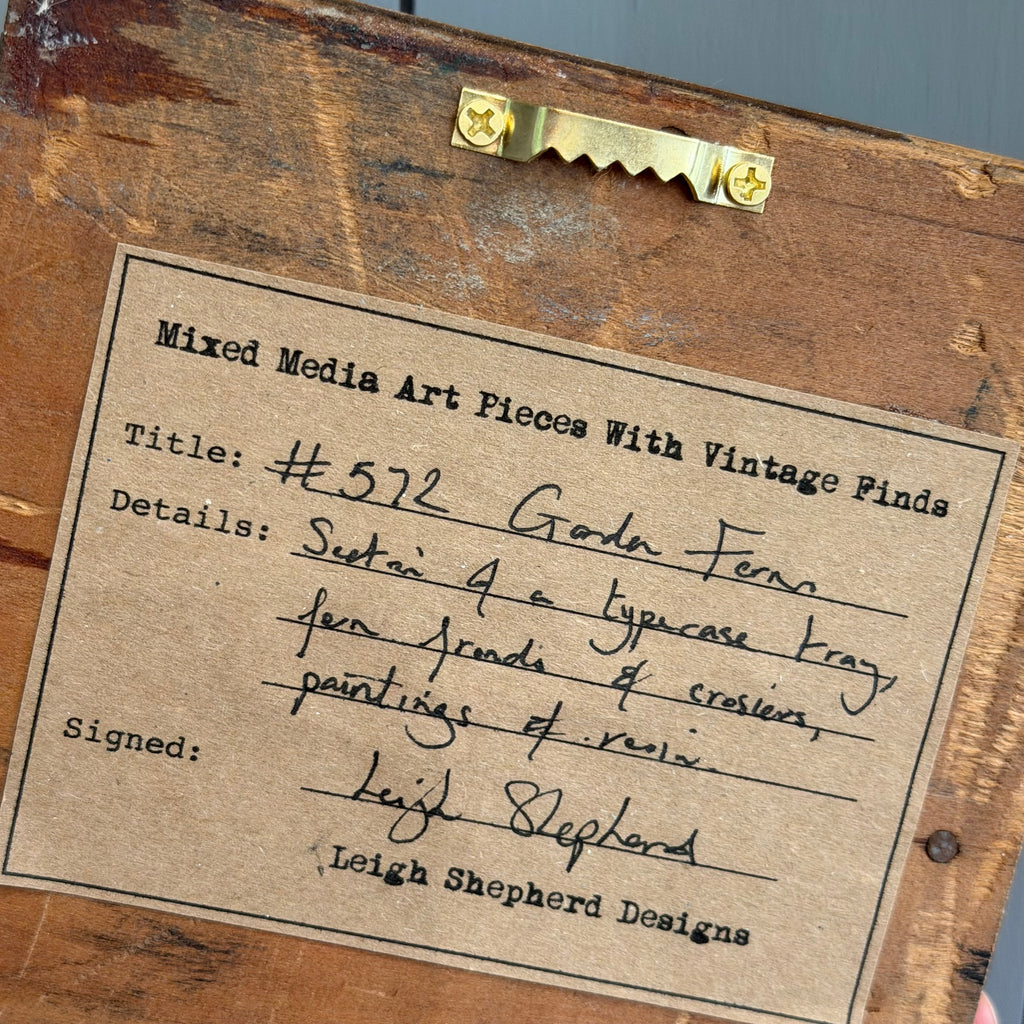 Mixed Media Art Pieces With Vintage Finds
Title: #572 Garden Ferns
Details: Section of a typecase tray,
fern fronds & crosiers,
paintings & resin.
Signed: Leigh Shepherd
Leigh Shepherd Designs